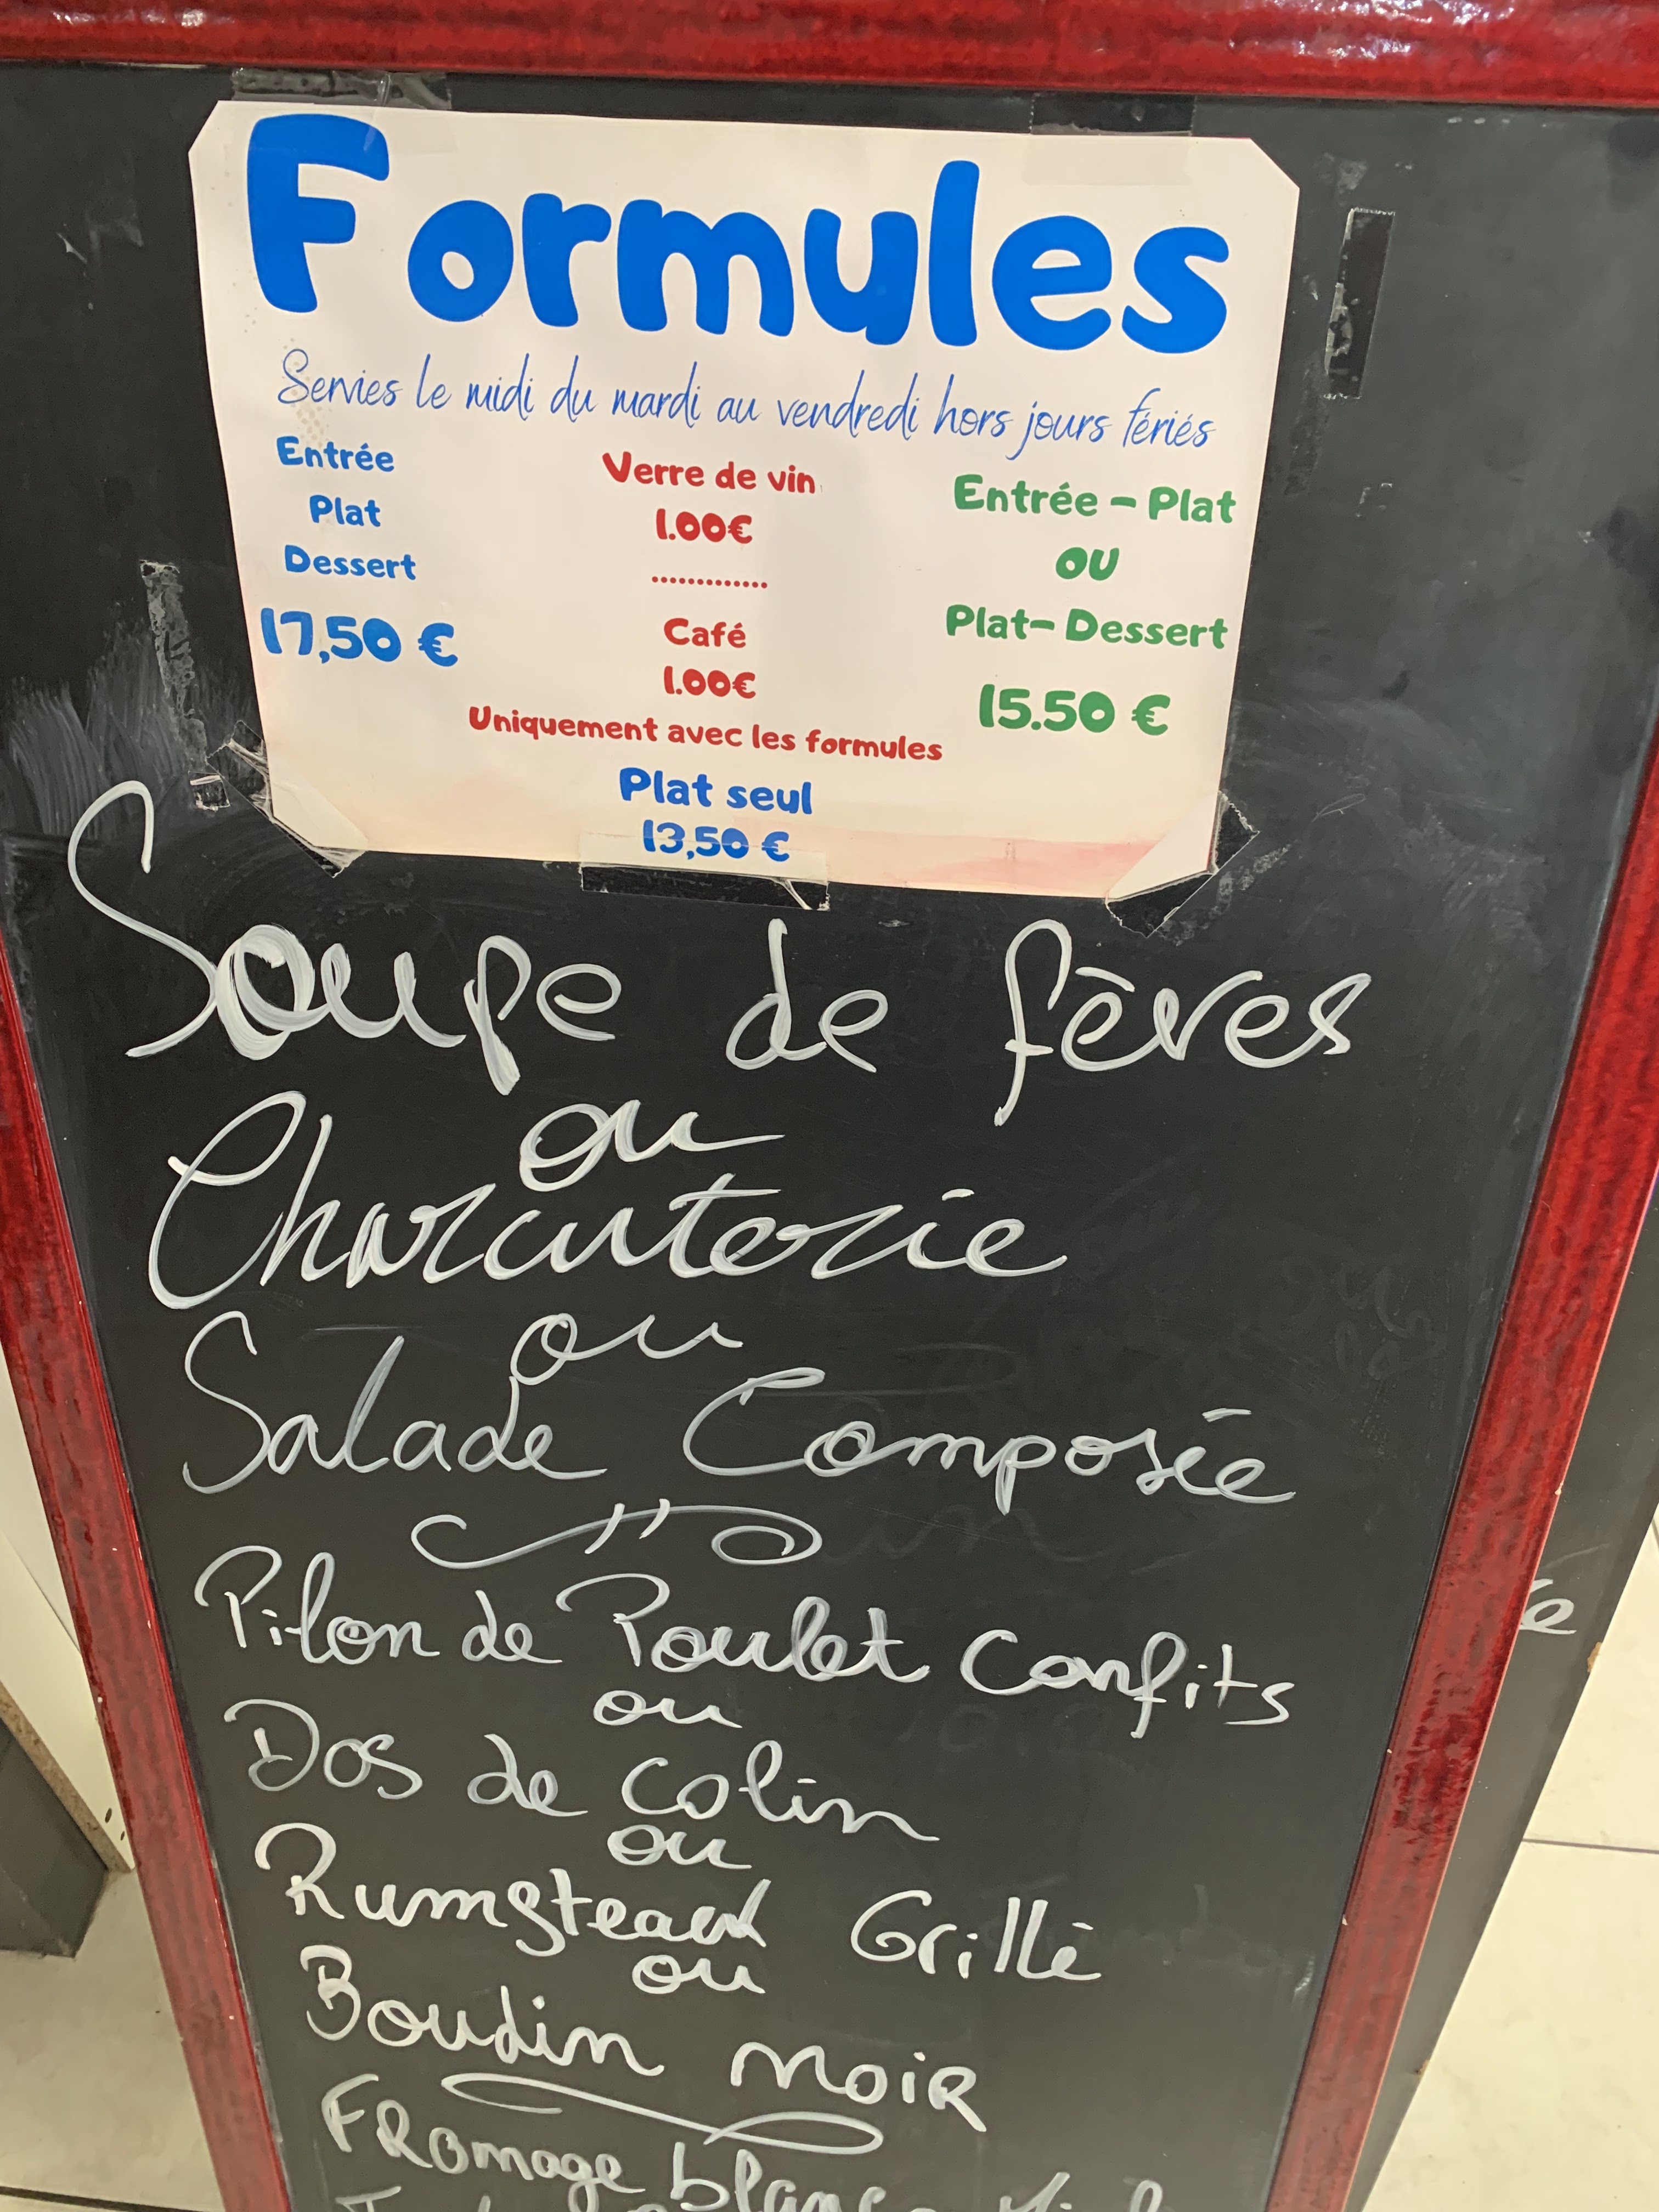 Formules
Servies le midi du mardi au vendredi hors jours fériés
Entrée
Plat
Dessert
17,50 €
Verre de vin
1.00€
.............
Café
1.00€
Uniquement avec les formules
Entrée - Plat
OU
Plat- Dessert
15.50 €
Plat seul
13,50 €
Soupe de fèves
ou
Charcuterie
ou
Salade Composée
Pilon de Poulet Confits
ou
Dos de colin
ou
Rumsteack Grillé
ou
Boudin noir
Fromage blanc